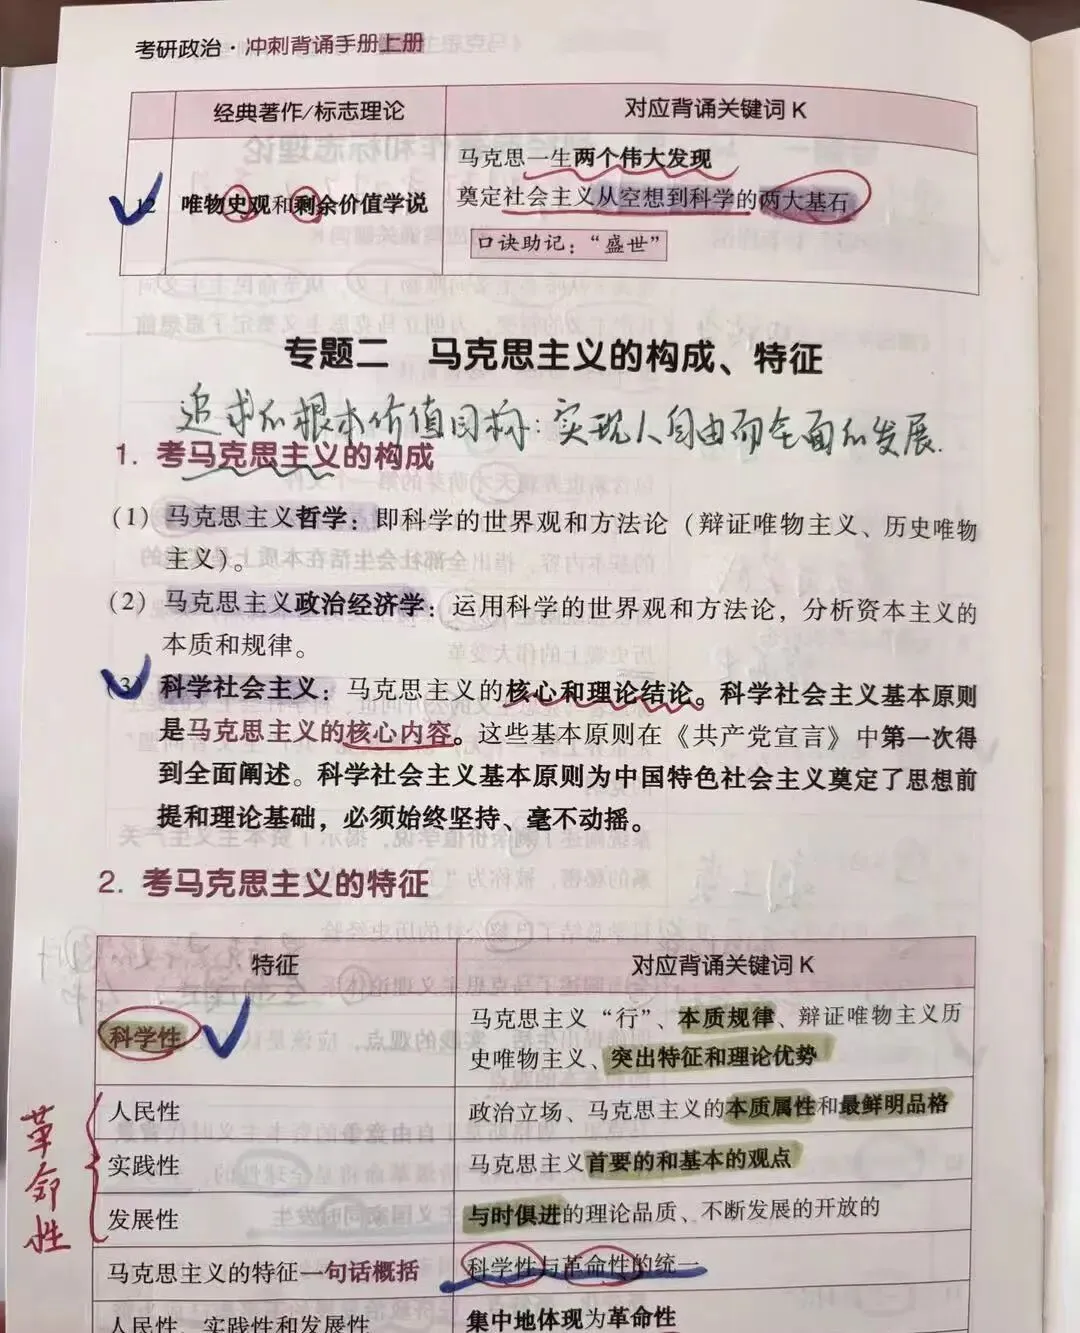 考研政治·冲刺背诵手册上册
经典著作/标志理论 对应背诵关键词 K
12 唯物史观和剩余价值学说 马克思一生两个伟大发现
奠定社会主义从空想到科学的两大基石
口诀助记：“盛世”
专题二 马克思主义的构成、特征
追求的根本价值目标：实现人自由而全面的发展.
1. 考马克思主义的构成
(1) 马克思主义哲学：即科学的世界观和方法论（辩证唯物主义、历史唯物
主义）。
(2) 马克思主义政治经济学：运用科学的世界观和方法论，分析资本主义的
本质和规律。
(3) 科学社会主义：马克思主义的核心和理论结论。科学社会主义基本原则
是马克思主义的核心内容。这些基本原则在《共产党宣言》中第一次得
到全面阐述。科学社会主义基本原则为中国特色社会主义奠定了思想前
提和理论基础，必须始终坚持、毫不动摇。
2. 考马克思主义的特征
特征 对应背诵关键词 K
科学性 马克思主义“行”、本质规律、辩证唯物主义历
史唯物主义、突出特征和理论优势
人民性 政治立场、马克思主义的本质属性和最鲜明品格
实践性 马克思主义首要的和基本的观点
发展性 与时俱进的理论品质、不断发展的开放的
革命性
马克思主义的特征一句话概括 科学性与革命性的统一
人民性、实践性和发展性 集中地体现为革命性